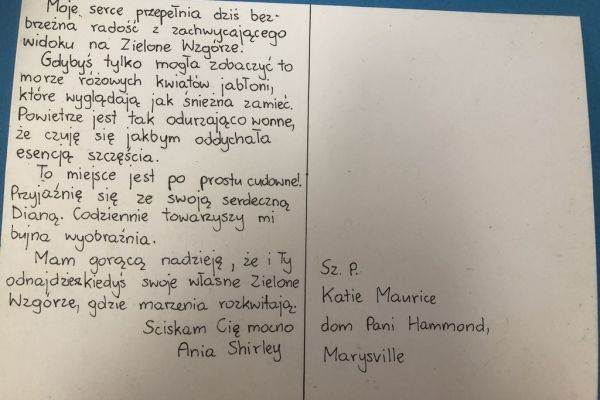 Moje serce przepełnia dziś bez-
brzeżna radość z zachwycającego
widoku na Zielone Wzgórze!
Gdybyś tylko mogła zobaczyć to
morze różowych kwiatów jabłoni,
które wyglądają jak śnieżna zamieć.
Powietrze jest tak odurzająco wonne,
że czuję się jakbym oddychała
esencją szczęścia.
To miejsce jest po prostu cudowne!
Przyjaźnię się ze swoją serdeczną
Dianą. Codziennie towarzyszy mi
bujna wyobraźnia.
Mam gorącą nadzieję, że i Ty
odnajdziesz kiedyś swoje własne Zielone
Wzgórze, gdzie marzenia rozkwitają.
Ściskam Cię mocno
Ania Shirley
Sz. P.
Katie Maurice
dom Pani Hammond,
Marysville